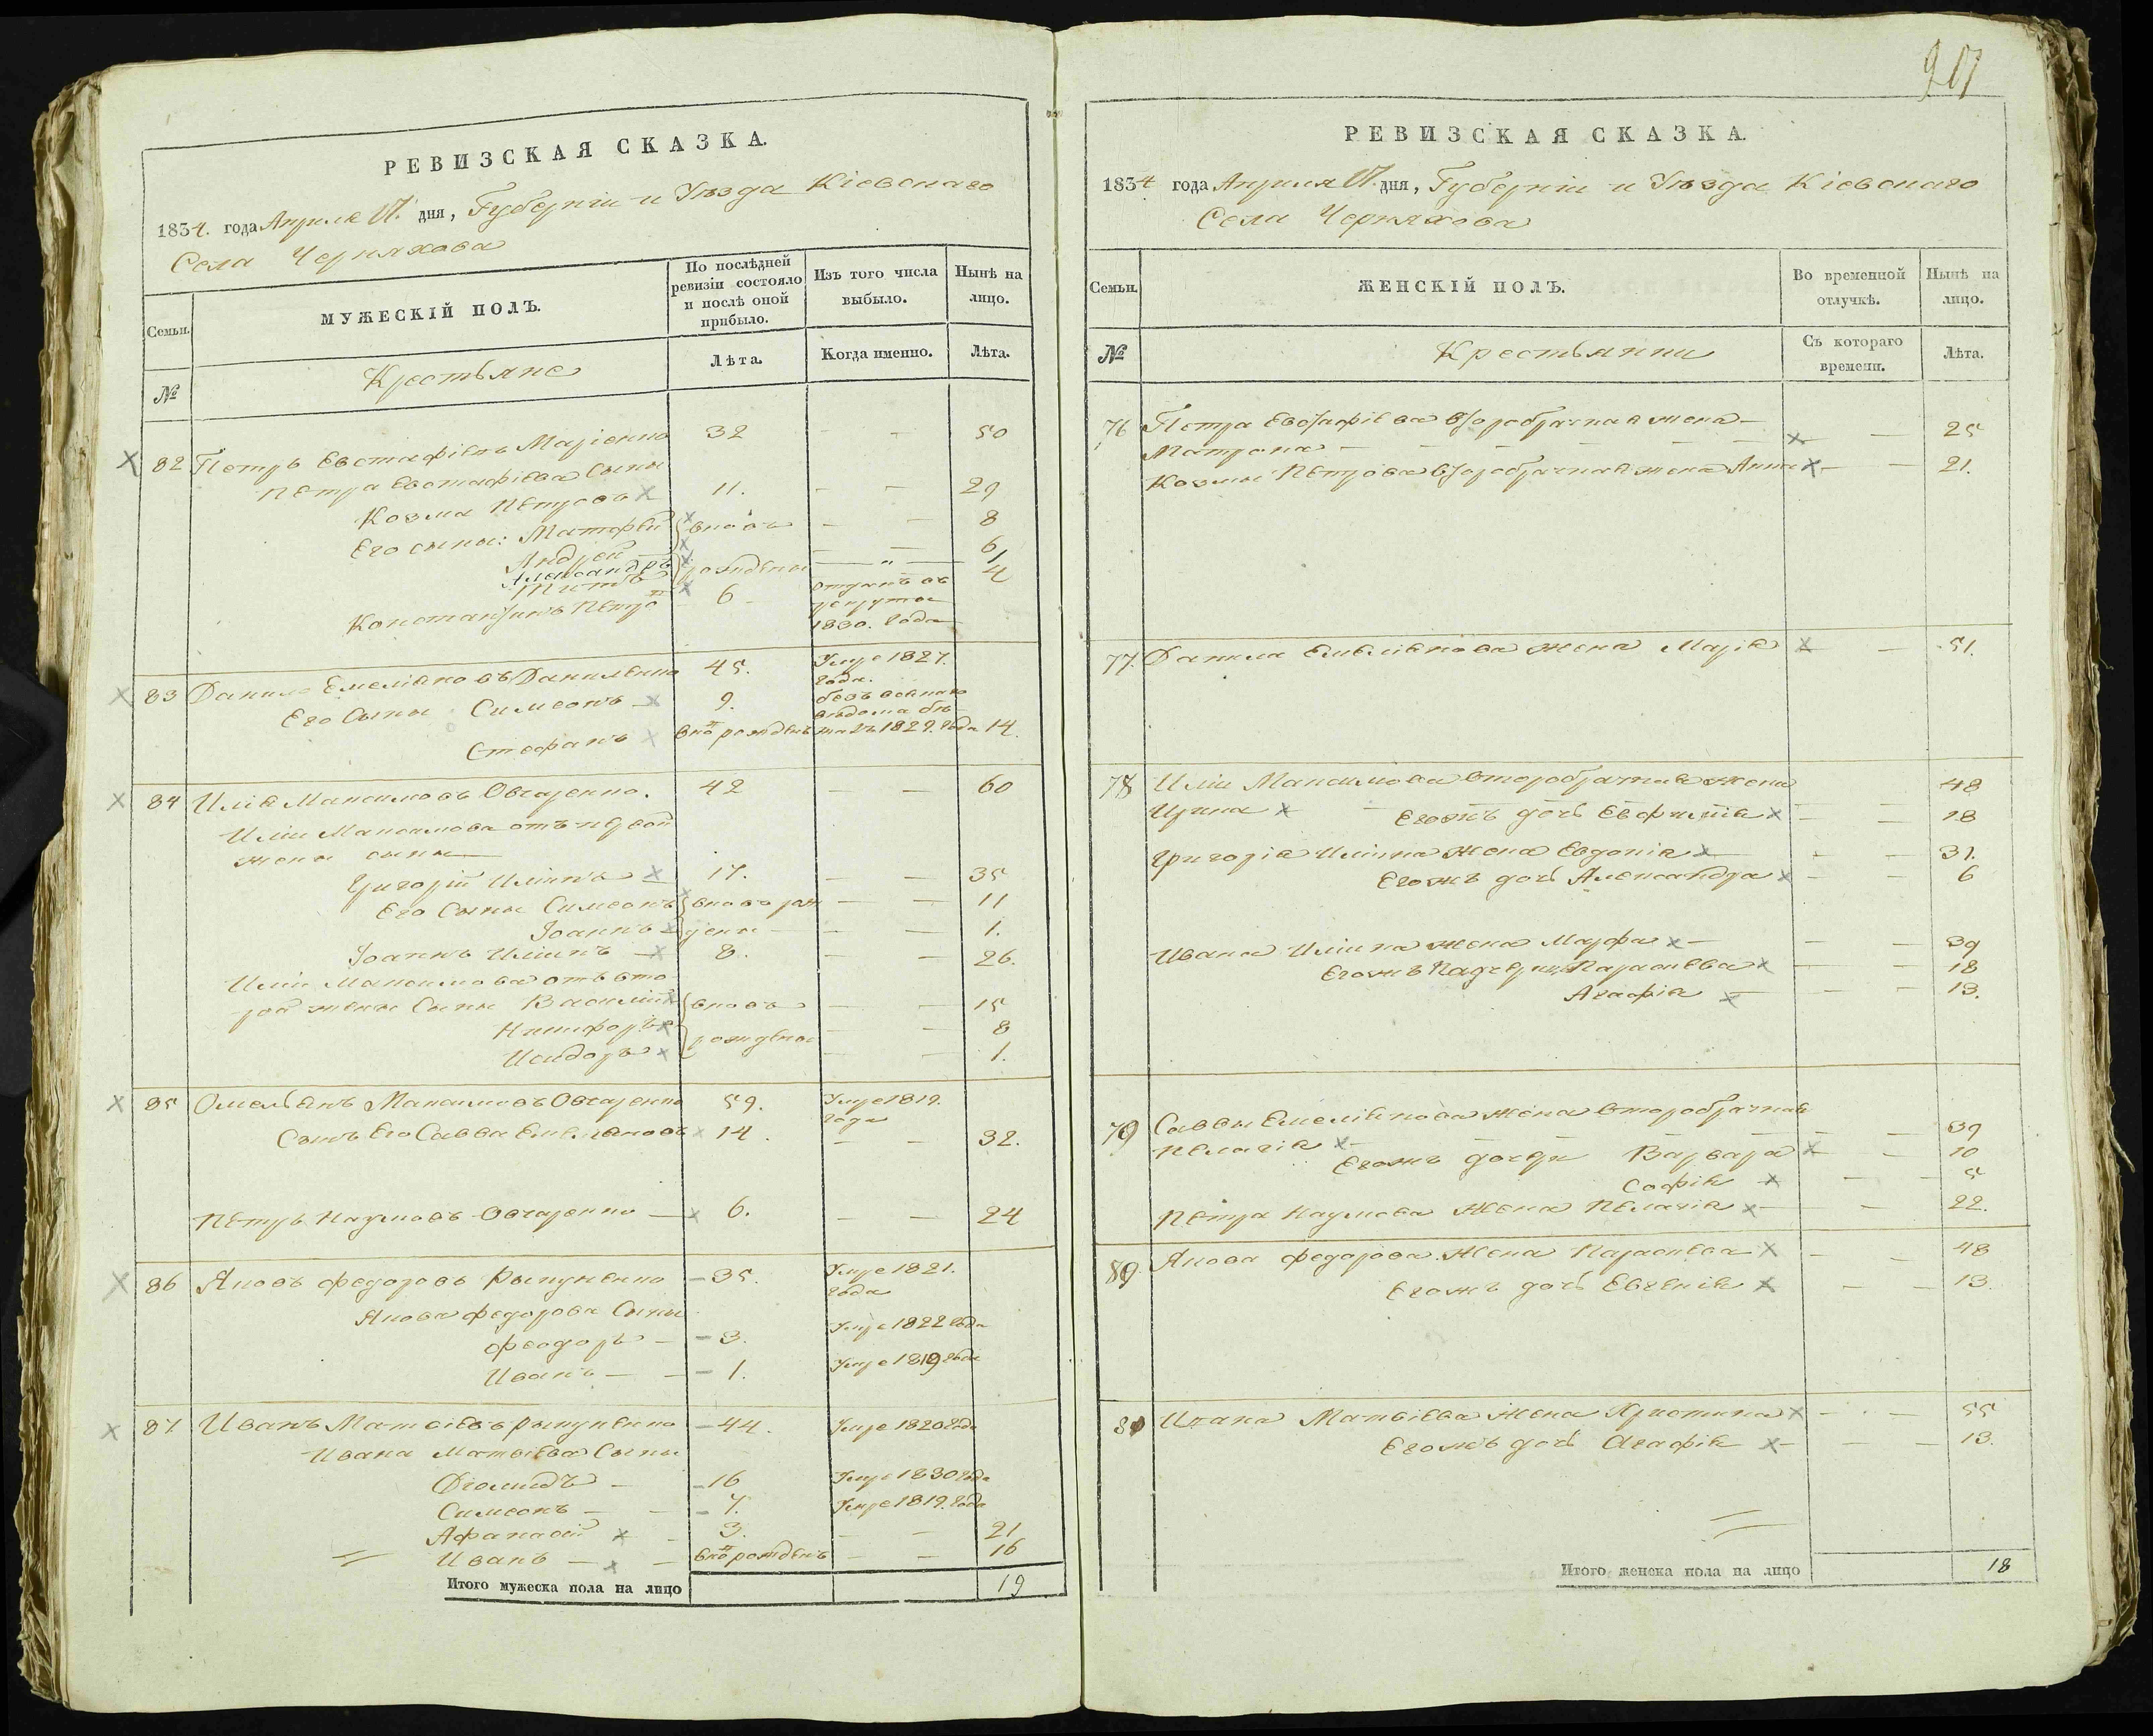 РЕВИЗСКАЯ СКАЗКА.
1834. года Апреля 17. дня, Губерніи и Уѣзда Кіевскаго
Села Черняхова
Семьи.
МУЖЕСКІЙ ПОЛЪ.
По послѣдней ревизіи состояло и послѣ оной прибыло.
Изъ того числа выбыло.
Нынѣ на лицо.
№
Крестьяне
Лѣта.
Когда именно.
Лѣта.
82 Петръ Евстафіевъ 32 — — 50
Петра Евстафіева Сыны
Козма Петровъ 11. — — 29
Его сыны: Матфей вновь — — 8
Андрей — — 6
Александръ рождены — „ — 1
Титъ 4
Константинъ Петро 6 отданъ въ
рекруты
1830. года
83 Данило Емеліяновъ Даниленко 45. Умре 1827.
года.
Его Сыны Симеонъ 9. безъ вѣснаго
вѣдома бѣ
Стефанъ вно рожденъ жалъ 1829. года 14.
84 Илія Максимовъ Овчаренко. 42 — — 60
Иліи Максимова отъ первой
жены сыны
Григорій Иліинъ 17. — — 35
Его Сыны Симеонъ вновь рож — — 11
Іоаннъ дены — — 1.
Іоаннъ Иліинъ 8. — — 26.
Иліи Максимова отъ вто
рой жены Сыны Василій вновь — — 15
Никифоръ — — 8
Исидоръ рождены — — 1.
85 Омельянъ Максимовъ Овчаренко 59. Умре 1819.
года
Сынъ Его Савва Емеліановъ 14. — — 32.
Петръ Наумовъ Овчаренко — 6. — — 24
86 Яковъ Федоровъ — 35. Умре 1821.
года
Якова Федорова Сыны
Феодоръ — — 3. Умре 1822 года
Иванъ — — 1. Умре 1819 года
87 Иванъ Матвіевъ — 44. Умре 1820 года
Ивана Матвіева Сыны
Діомидъ — — 16 Умре 1830 года
Симеонъ — — 7. Умре 1819. года
Афанасій 3. — — 21
Иванъ — — вно рожденъ — — 16
Итого мужеска пола на лицо 19
917
РЕВИЗСКАЯ СКАЗКА.
1834 года Апреля 17. дня, Губерніи и Уѣзда Кіевскаго
Села Черняхова
Семьи.
ЖЕНСКІЙ ПОЛЪ.
Во временной отлучкѣ.
Нынѣ на лицо.
№
Крестьянки
Съ котораго времени.
Лѣта.
76 Петра Евстафіева второбрачная жена —
Матрона — — 25
Козмы Петрова второбрачная жена Анна — — 21.
77. Данила Емеліянова жена Марія — — 51.
78 Иліи Максимова второбрачная жена 48
Ирина
Егожъ дочь Евфимія — — 18
Григорія Иліина жена Евдокія — — 31.
Егожъ дочь Александра — — 6
Ивана Иліина жена Марфа — — — 39
Егожъ Падчерицы Параскева — — 18
Агафія — — 13.
79 Саввы Емеліянова жена второбрачная
Пелагія — — 39
Егожъ дочери Варвара — — 10
Софія — — 5
Петра Наумова жена Пелагія — — 22.
80 Якова Федорова жена Параскева — — 48
Егожъ дочь Евгенія — — 13.
81 Ивана Матвіева жена Христина — — 55
Егожъ дочь Агафія — — — 13.
Итого женска пола на лицо 18